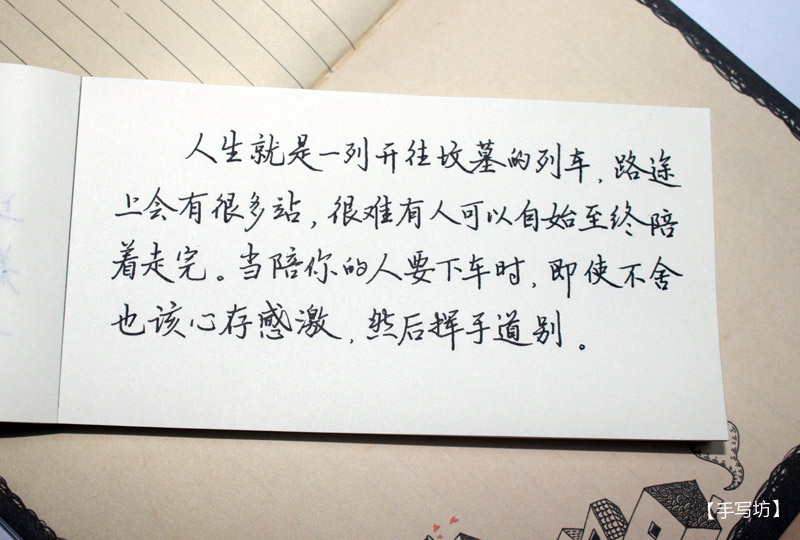 人生就是一列开往坟墓的列车,路途
上会有很多站,很难有人可以自始至终陪
着走完。当陪你的人要下车时,即使不舍
也该心存感激,然后挥手道别。
【手写坊】